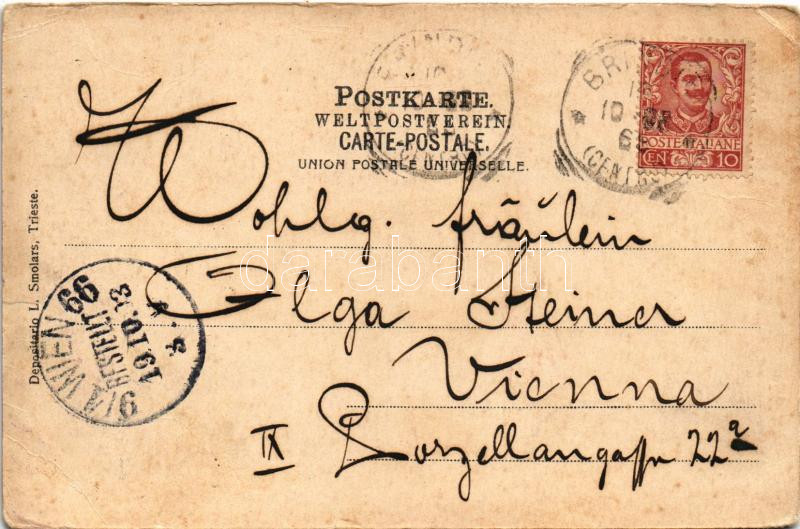 POSTKARTE.
WELTPOSTVEREIN.
CARTE-POSTALE.
UNION POSTALE UNIVERSELLE.
POSTE ITALIANE
CEN 10
BRI
10
(CENTRO
Wohlg. Fräulein
Olga Steiner
Vienna
IX Porzellangasse 22a
Depositario L. Smolars, Trieste.
9/4 WIEN 66
BESTELLT
19.10.03
darabanth